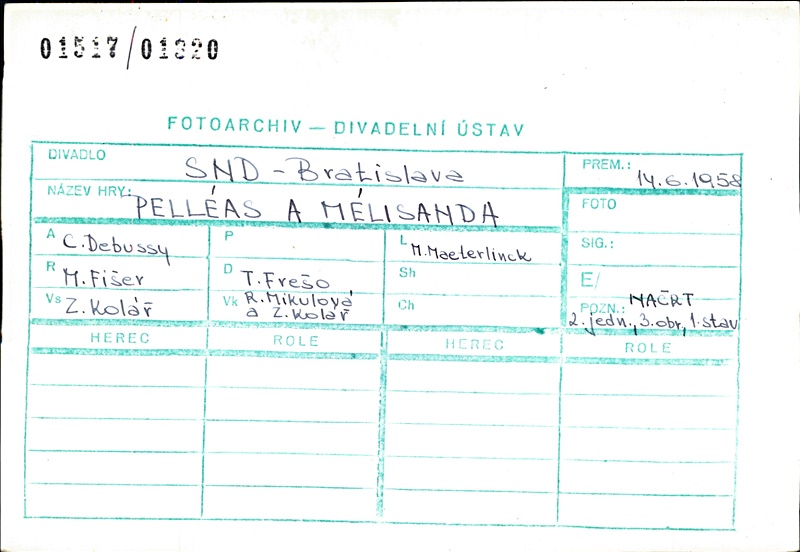 01517/01320
FOTOARCHIV — DIVADELNÍ ÚSTAV
DIVADLO SND - Bratislava
PREM.: 14.6.1958
NÁZEV HRY: PELLÉAS A MÉLISANDA
FOTO
A C. Debussy
P
L M. Maeterlinck
SIG.:
R M. Fišer
D T. Frešo
Sh
E/
Vs Z. Kolář
Vk R. Mikulová
a Z. Kolář
Ch
POZN.: NAČRT
2. jedn., 3. obr., 1. stav
HEREC ROLE HEREC ROLE